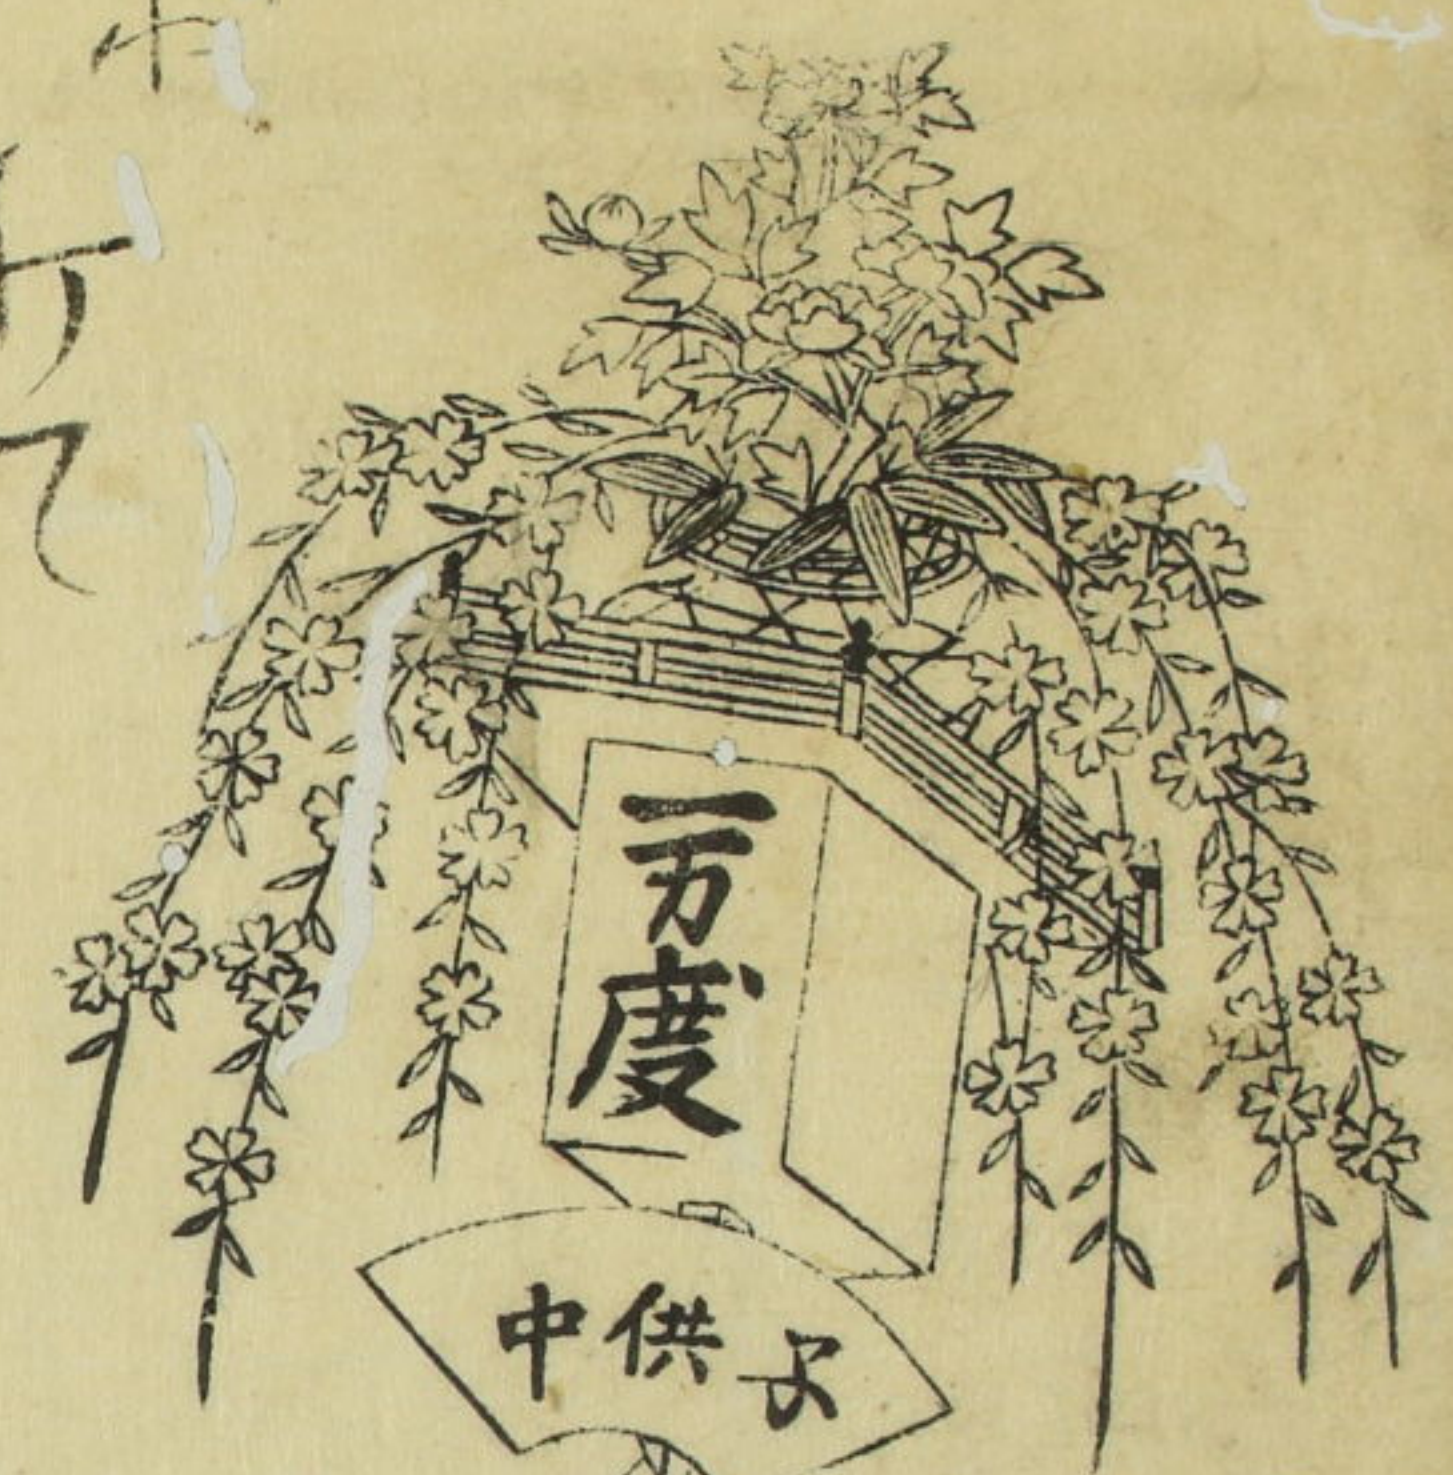 一万度
子供中